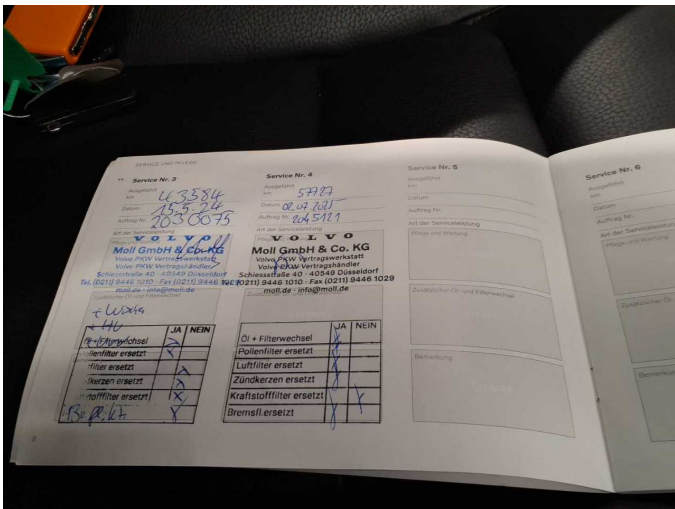 SERVICE UND PFLEGE
Service Nr. 3
Ausgeführt
km 43584
Datum 15.5.24
Auftrag Nr. 2030075
Art der Serviceleistung
VOLVO
Moll GmbH & Co. KG
Volvo PKW Vertragswerkstatt
Volvo PKW Vertragshändler
Schiessstraße 40 · 40549 Düsseldorf
Tel. (0211) 9446 1010 · Fax (0211) 9446
moll.de · info@moll.de
Zusätzlicher Öl- und Filterwechsel
+ HU
JA NEIN
Öl + Filterwechsel
Pollenfilter ersetzt X
filter ersetzt X
kerzen ersetzt X
stofffilter ersetzt X
Service Nr. 4
Ausgeführt
km 57727
Datum 02.07.2025
Auftrag Nr. 2045121
Art der Serviceleistung
VOLVO
Moll GmbH & Co. KG
Volvo PKW Vertragswerkstatt
Volvo PKW Vertragshändler
Schiessstraße 40 · 40549 Düsseldorf
(0211) 9446 1010 · Fax (0211) 9446 1029
moll.de · info@moll.de
JA NEIN
Öl + Filterwechsel X
Pollenfilter ersetzt X
Luftfilter ersetzt X
Zündkerzen ersetzt X
Kraftstofffilter ersetzt X
Bremsfl.ersetzt X
Service Nr. 5
Ausgeführt
km
Datum
Auftrag Nr.
Art der Serviceleistung
Pflege und Wartung
Zusätzlicher Öl- und Filterwechsel
Bemerkung
Service Nr. 6
Ausgeführt
km
Datum
Auftrag Nr.
Art der Serviceleistung
Pflege und Wartung
Zusätzlicher Öl-
Bemerkung